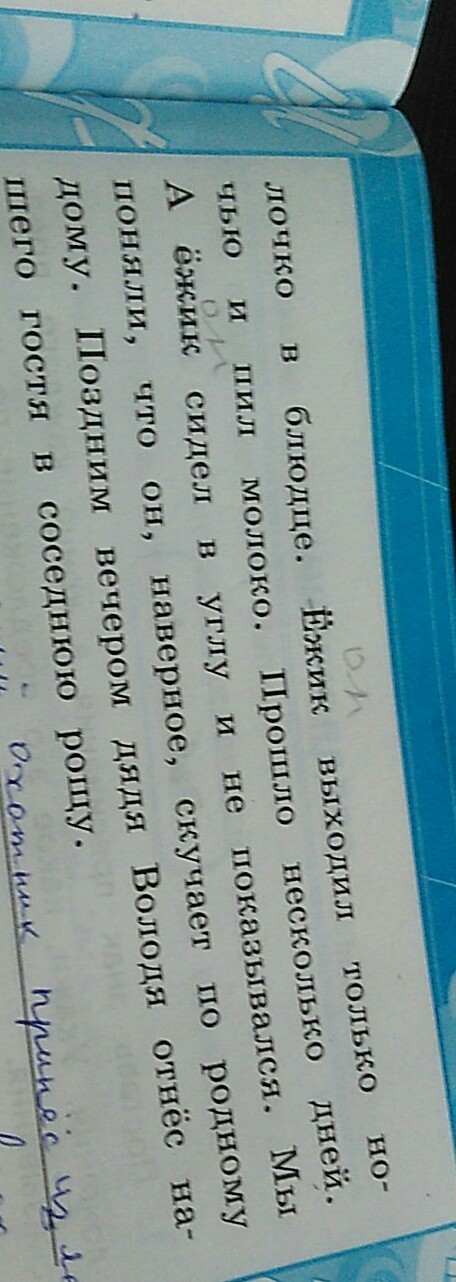 лочко в блюдце. Ёжик выходил только но-
чью и пил молоко. Прошло несколько дней.
А ёжик сидел в углу и не показывался. Мы
поняли, что он, наверное, скучает по родному
дому. Поздним вечером дядя Володя отнёс на-
шего гостя в соседнюю рощу.
охотник принёс из